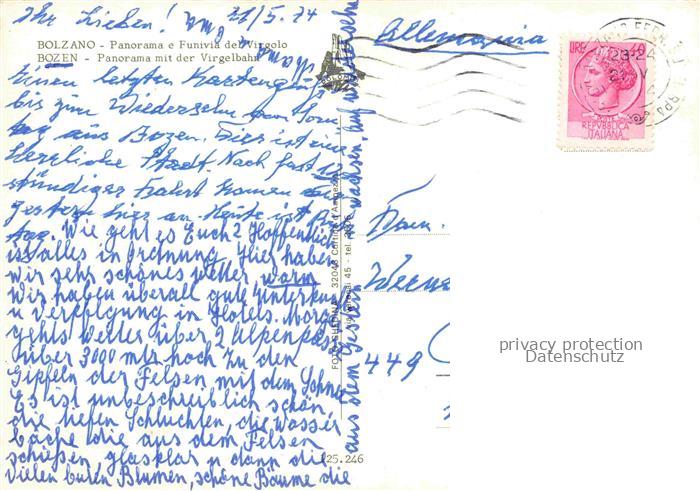 Ihr Lieben! 21/5.74
BOLZANO - Panorama e Funivia del Virgolo
BOZEN - Panorama mit der Virgelbahn
Einen letzten Kartengruß
bis zum Wiedersehn am
tag aus Bozen. Dies ist eine
herrliche Stadt. Nach fast 12
stündiger Fahrt kamen
gestern hier an. Heute ist
tag. Wie geht es Euch? Hoffentlich
ist alles in Ordnung. Hier haben
wir sehr schönes Wetter warm
Wir haben überall gute Unterkunft
u Verpflegung in Hotels. Morgen
gehts weiter über 2 Alpenpässe
über 3000 mtr hoch zu den
Gipfeln der Felsen mit dem Schnee
Es ist unbeschreiblich schön
die tiefen Schluchten, die Wasser
bäche die aus dem Felsen
schießen glasklar u dann die
vielen bunten Blumen, schöne Bäume die
aus dem Gestein wachsen. Auf Wiedersehn
Oma
32043 Cortina d'Ampezzo
45 - tel.
25.246
Allemagnia
LIRE 40
POSTE
REPVBBLICA
ITALIANA
23-24
Fam.
Werne
449
privacy protection
Datenschutz